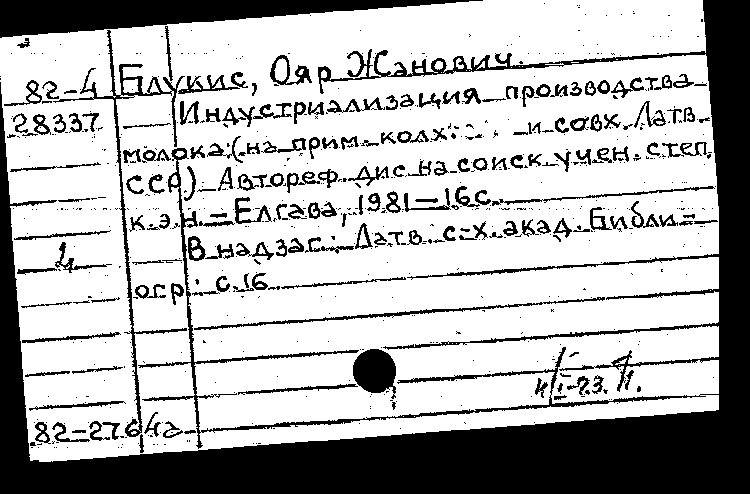 82-4 Блукис, Ояр Жанович.
28337 Индустриализация производства
молока: (на прим. колх. и совх. Латв.
ССР) Автореф. дис на соиск учен. степ.
к.э.н. – Елгава, 1981 – 16 с.
В надзаг: Латв. с-х. акад. Библи-
огр: с. 16
82-2764а